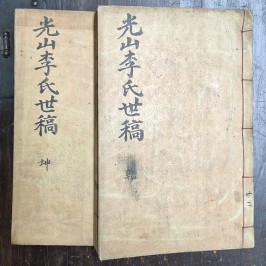 光山李氏世稿
乾
光山李氏世稿
坤